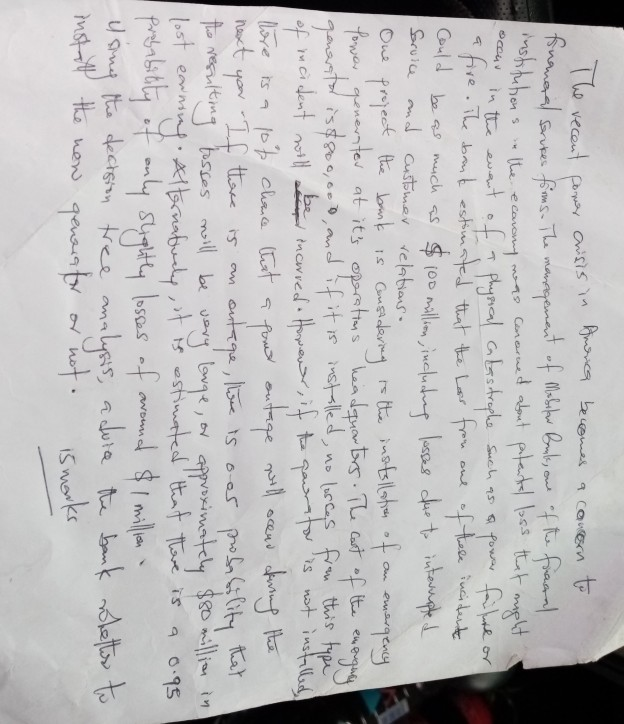 The recent power crisis in America becomes a concern to
financial services firms. The management of Bank, one of the financial
institutions in the economy was concerned about potential loss that might
occur in the event of a physical catastrophe such as a power failure or
a fire. The bank estimated that the loss from one of these incidents
could be as much as $100 million, including losses due to interrupted
service and customer relations.
One project the bank is considering is the installation of an emergency
power generator at it's operations headquarters. The cost of the emergency
generator is $800,000, and if it is installed, no losses from this type
of incident will be incurred. However, if the generator is not installed,
there is a 10% chance that a power outage will occur during the
next year. If there is an outage, there is 0.05 probability that
the resulting losses will be very large, or approximately $80 million in
lost earnings. Alternatively, it is estimated that there is a 0.95
probability of only slightly losses of around $1 million.
Using the decision tree analysis, advice the bank whether to
install the new generator or not.
15 marks